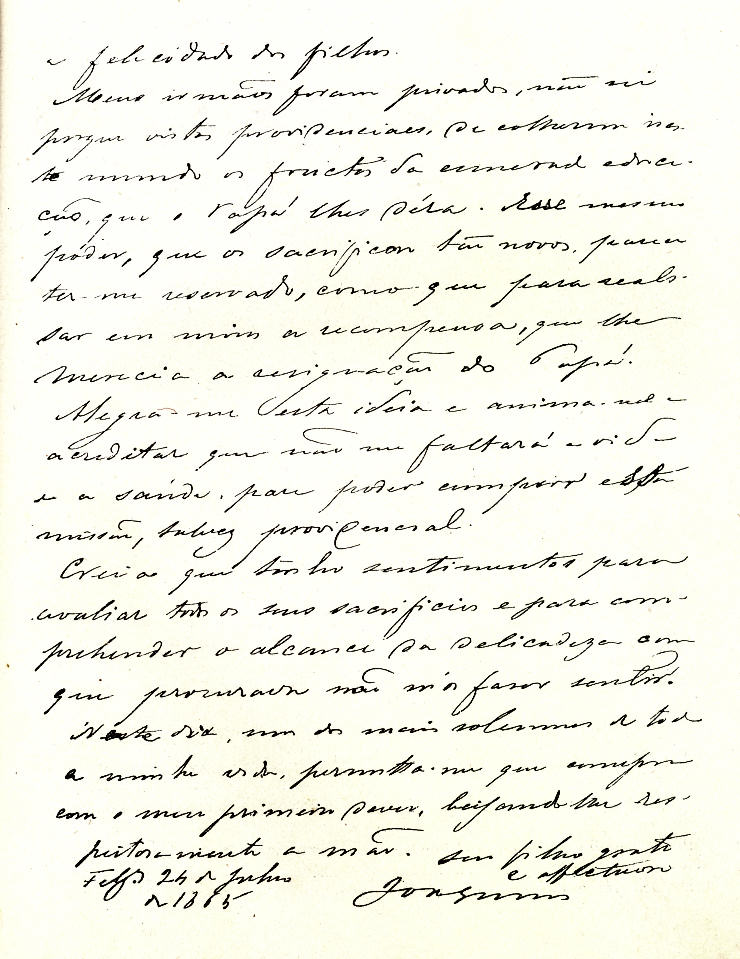 a felicidade dos filhos.
Meus irmãos foram privados, não sei
porque vistas providenciaes, de colherem nes-
te mundo os fructos da esmerada educa-
ção, que o Papá lhes déra. Esse mesmo
pôder, que os sacrificou tão novos, parece
ter-me reservado, como que para reals-
sar em mim a recompensa, que lhe
merecia a resignação do Papá.
Alegra-me esta idéia e anima-me a
acreditar que não me faltará a vida
e a saúde, para poder cumprir esta
missão, talvez providencial.
Creia que tenho sentimentos para
avaliar todos os seus sacrificios e para com-
prehender o alcance da delicadeza com
que procurava não nos fazer sentir.
Neste dia, um dos mais solemnes de toda
a minha vida, permitta-me que cumpra
com o meu primeiro dever, beijando-lhe res-
peitosamente a mão. Seu filho grato
e affectuoso
24 de Julho
de 1865
Joaquim